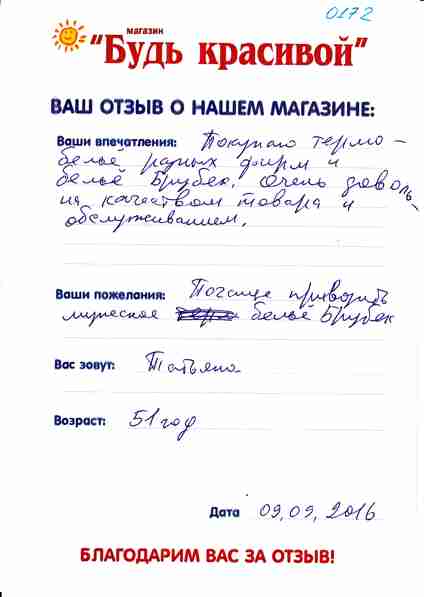 0172
магазин
"Будь красивой"
ВАШ ОТЗЫВ О НАШЕМ МАГАЗИНЕ:
Ваши впечатления: Покупаю термо-
бельё разных фирм и
бельё Брубек. Очень доволь-
на качеством товара и
обслуживанием.
Ваши пожелания: Почаще привозить
мужское бельё Брубек
Вас зовут: Татьяна
Возраст: 51 год
Дата 09,09,2016
БЛАГОДАРИМ ВАС ЗА ОТЗЫВ!